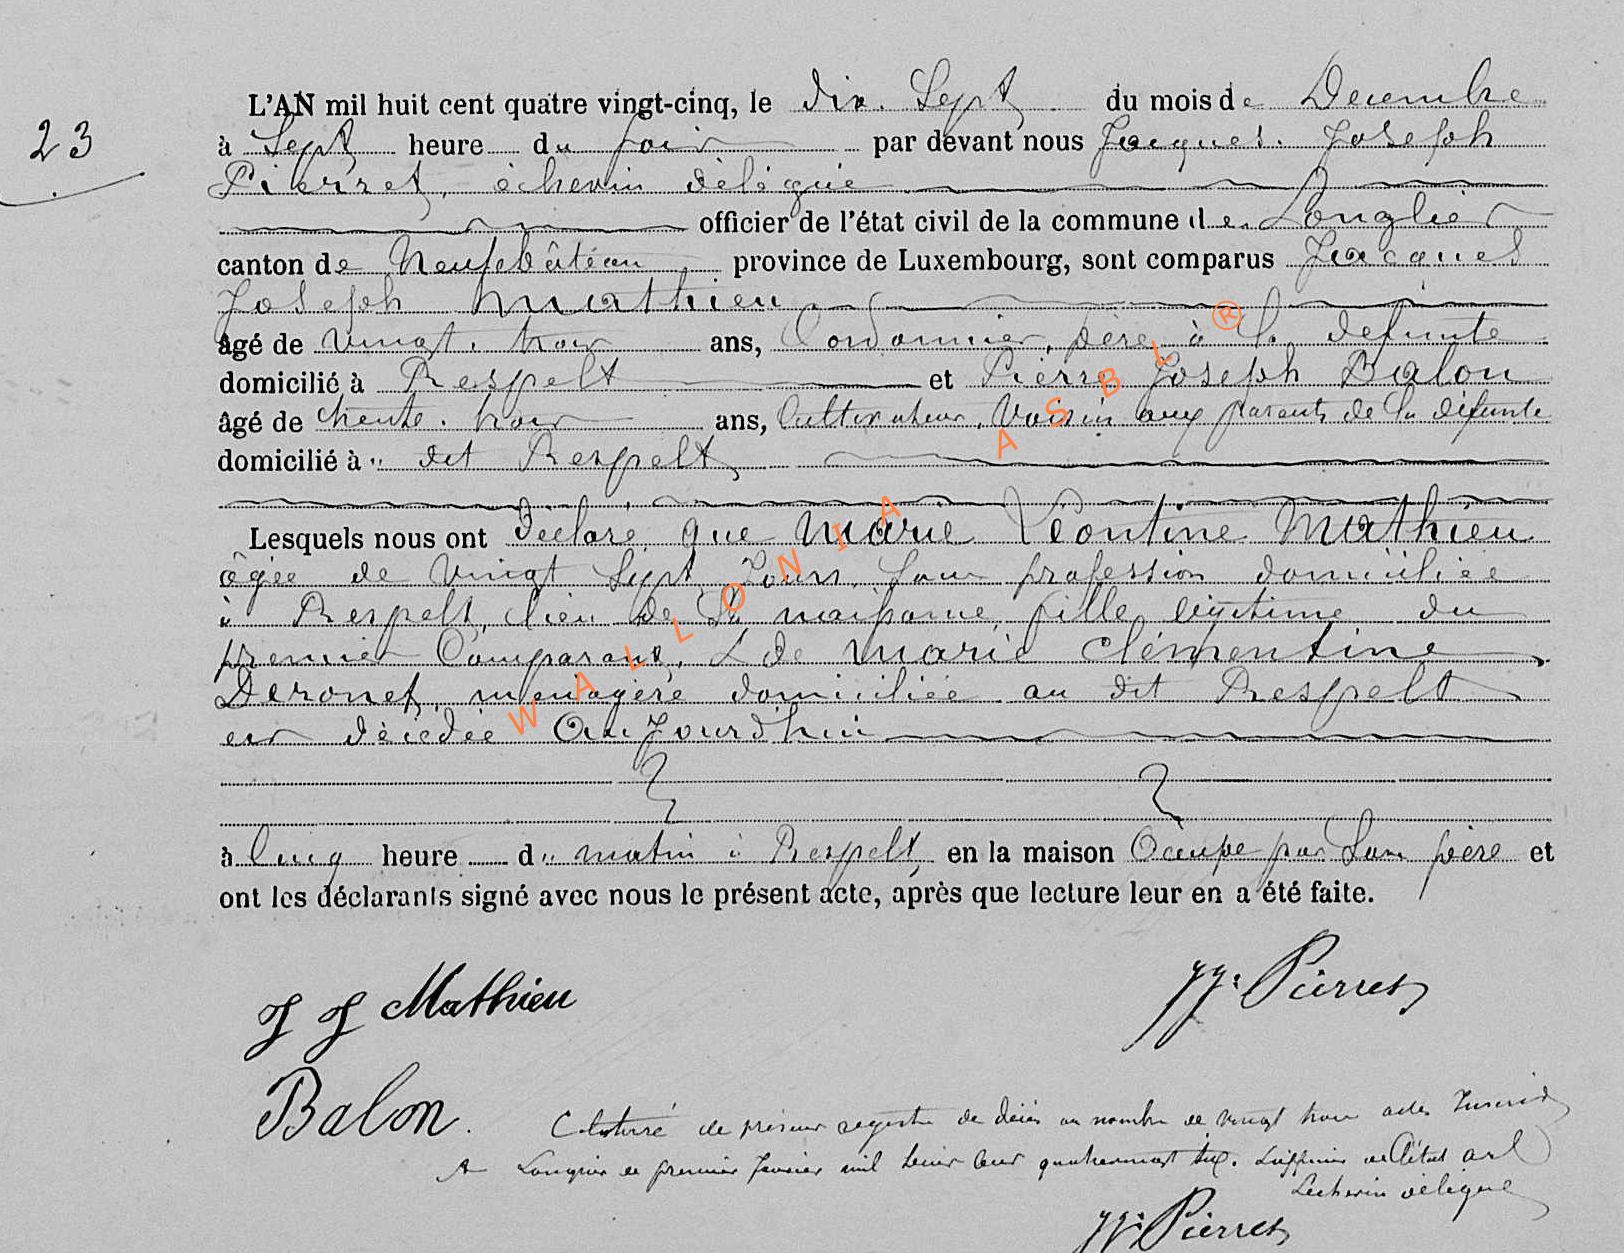 23
L'AN mil huit cent quatre vingt-cinq, le dix. Sept du mois de Decembre
à Sept heure du soir par devant nous Jacques. Joseph
Pierret, échevin délégué
officier de l'état civil de la commune de Longlier
canton de Neufchâteau province de Luxembourg, sont comparus Jacques
Joseph Mathieu
âgé de vingt. trois ans, Cordonnier, père à la defunte
domicilié à Respelt et Pierre Joseph Balon
âgé de trente. trois ans, Cultivateur, Voisin aux parents de la défunte
domicilié à " dit Respelt
Lesquels nous ont déclaré que Marie Léontine Mathieu
âgée de Vingt Sept Jours, sans profession domiciliée
à Respelt, lieu de Sa naissance, fille légitime du
premier Comparant, & de Marie Clémentine
Deronet, ménagère domiciliée au dit Respelt
est décédée Aujourd'hui
à Cinq heure du matin à Respelt, en la maison Occupé par Son père et
ont les déclarants signé avec nous le présent acte, après que lecture leur en a été faite.
J J Mathieu
JJ. Pierret
Balon
Cloturé le présent registre de décès au nombre de vingt trois actes Inscrits
A Longlier le premier Janvier mil huit cent quatrevingt six. L'officier de l'état
L'échevin délégué
JJ. Pierret
WALLONIA ASBL ®